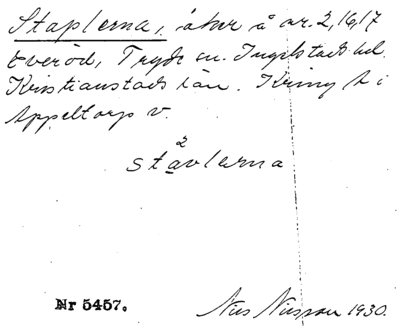 Staplerna, åker å nr. 2, 16, 17
Everöd, Tryde sn. Ingelstads hd.
Kristianstads län. Kring h i
Äppeltorp v.
2
stavlerna
Nr 5457.
Nils Nilsson 1930.